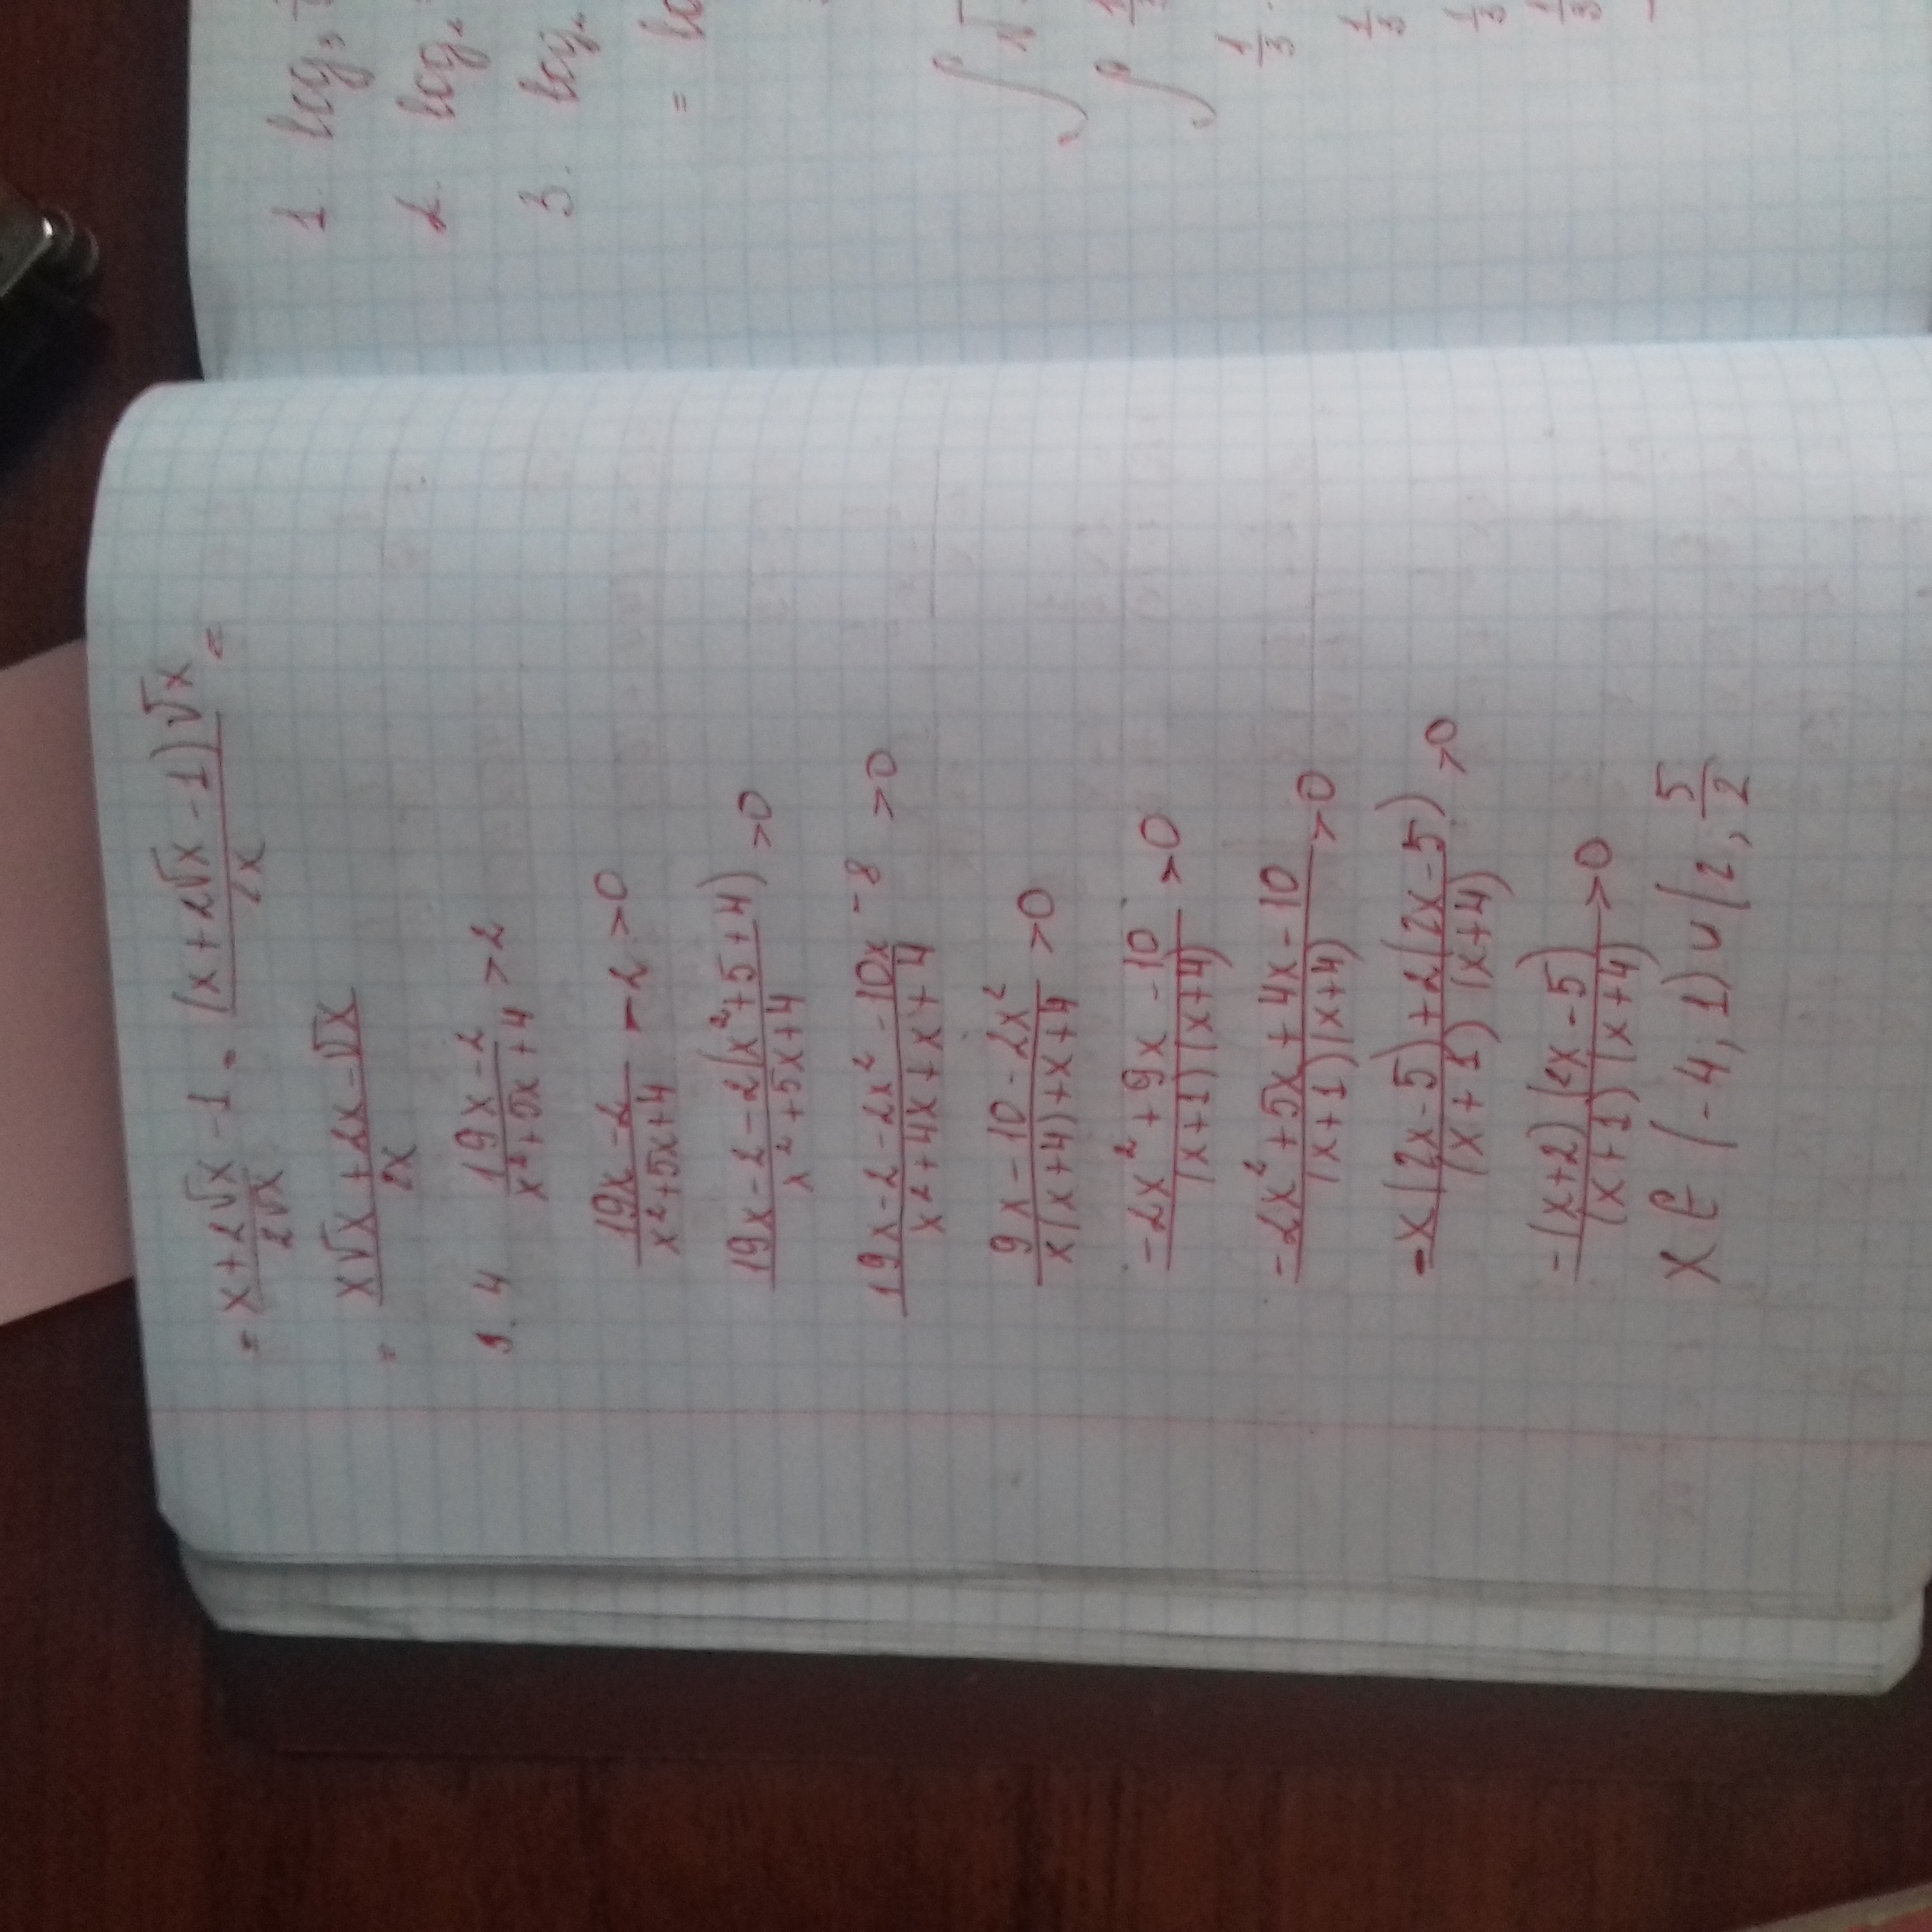 = (x + 2√x)/(2√x) - 1 = ((x + 2√x - 1)√x)/(2x) =
= (x√x + 2x - √x)/(2x)
9. 4 (19x - 2)/(x² + 5x + 4) > 2
(19x - 2)/(x² + 5x + 4) - 2 > 0
(19x - 2 - 2(x² + 5 + 4))/(x² + 5x + 4) > 0
(19x - 2 - 2x² - 10x - 8)/(x² + 4x + x + 4) > 0
(9x - 10 - 2x²)/(x(x + 4) + x + 4) > 0
(-2x² + 9x - 10)/((x + 1)(x + 4)) > 0
(-2x² + 5x + 4x - 10)/((x + 1)(x + 4)) > 0
(-x(2x - 5) + 2(2x - 5))/((x + 1)(x + 4)) > 0
(-(x + 2)(2x - 5))/((x + 1)(x + 4)) > 0
x ∈ (-4; 1) ∪ (2, 5/2
1. log₃
2. log₂
3. log₂
=
∫ √
∫ 1
1/3
1/3
1/3
1/3